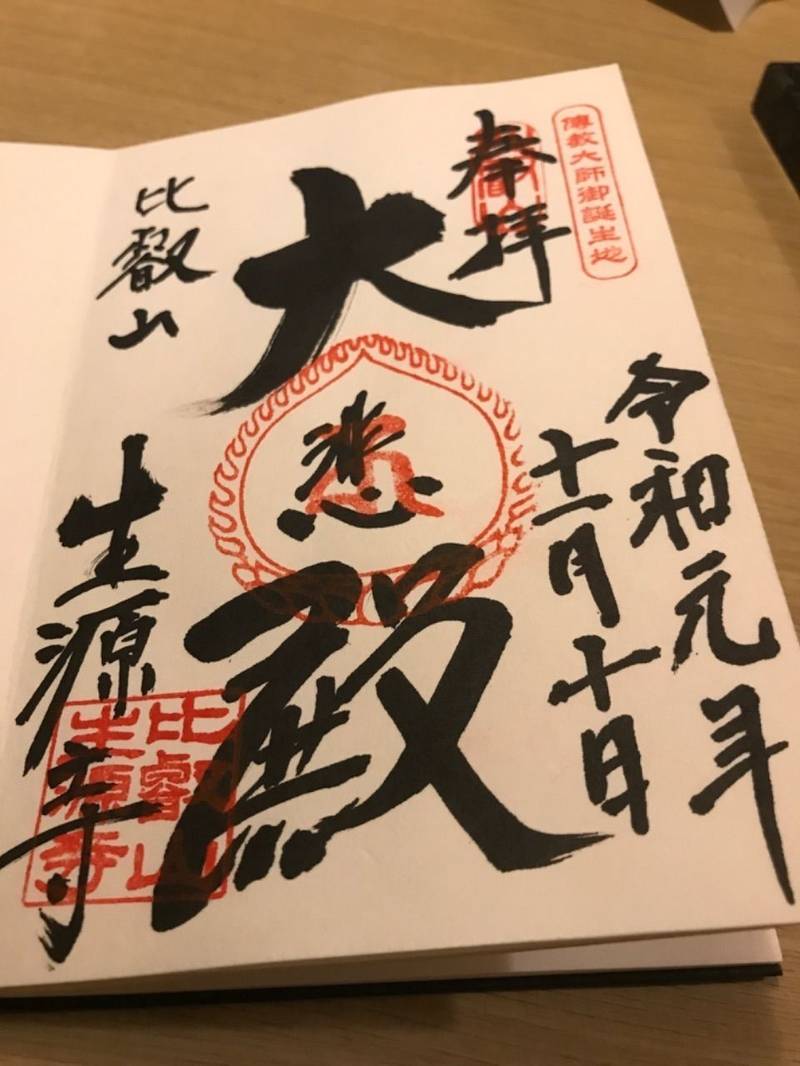 傳教大師御誕生地
奉拝
令和元年
十一月十日
大悲殿
比叡山
生源寺
比叡山
生源寺